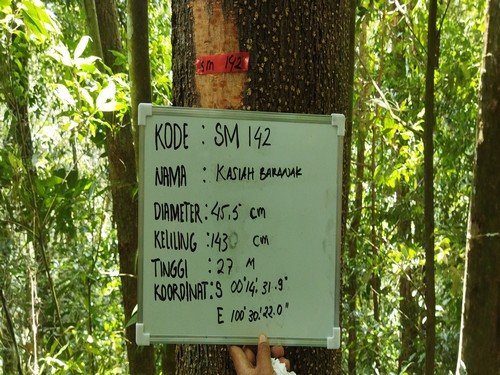 SM 142
KODE : SM 142
NAMA : KASIAH BARANAK
DIAMETER : 45.5 cm
KELILING : 143 cm
TINGGI : 27 M
KOORDINAT : S 00°14'.31.9"
E 100°30'.22.0"